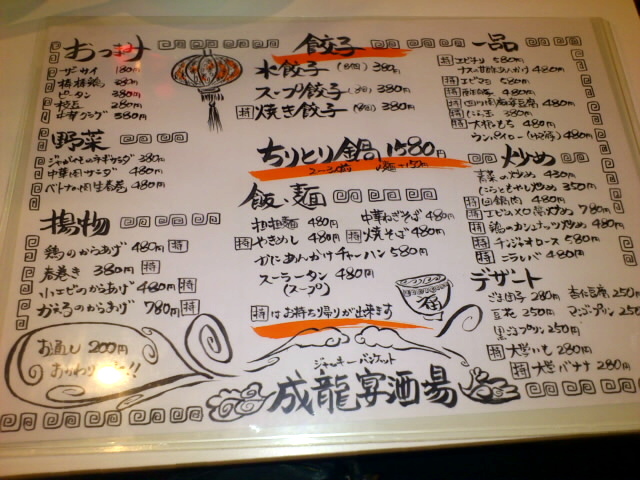 おつまみ
ザーサイ 180円
棒棒鶏
ピータン 380円
枝豆 280円
380円
野菜
ジャがいものネギサラダ 380円
中華風サラダ 480円
ベトナム風生春巻 480円
揚物
鶏のからあげ 480円 特
春巻き 380円 特
小エビのからあげ 480円 特
かえるのからあげ 780円 特
お通し 200円
おかわり
餃子
水餃子 380円
スープ餃子 380円
特 焼き餃子 380円
ちりとり鍋 1580円
飯、麺
担担麺 480円
中華ねぎそば 480円
特 やきめし 480円
特 焼そば 480円
かにあんかけチャーハン 580円
スーラータン 480円
(スープ)
特 はお持ち帰りが出来ます
ジャッキー バンケット
成龍宴酒場
一品
特 エビチリ 580円
ナスの甘酢あんかけ 480円
特 エビマヨ 580円
特 480円
特 四川風麻婆豆腐 480円
特 380円
特 大根もち 480円
480円
炒め
青菜の炒め 430円
にらともやし炒め 350円
特 回鍋肉 480円
特 エビとXO醤炒め 780円
特 鶏のカシュナッツ炒め 480円
特 チンジャオロース 580円
特 ニラレバ 480円
デザート
ごま団子 280円
杏仁豆腐 250円
豆花 250円
マンゴプリン 250円
黒ごまプリン 250円
特 大学いも 280円
特 大学バナナ 280円